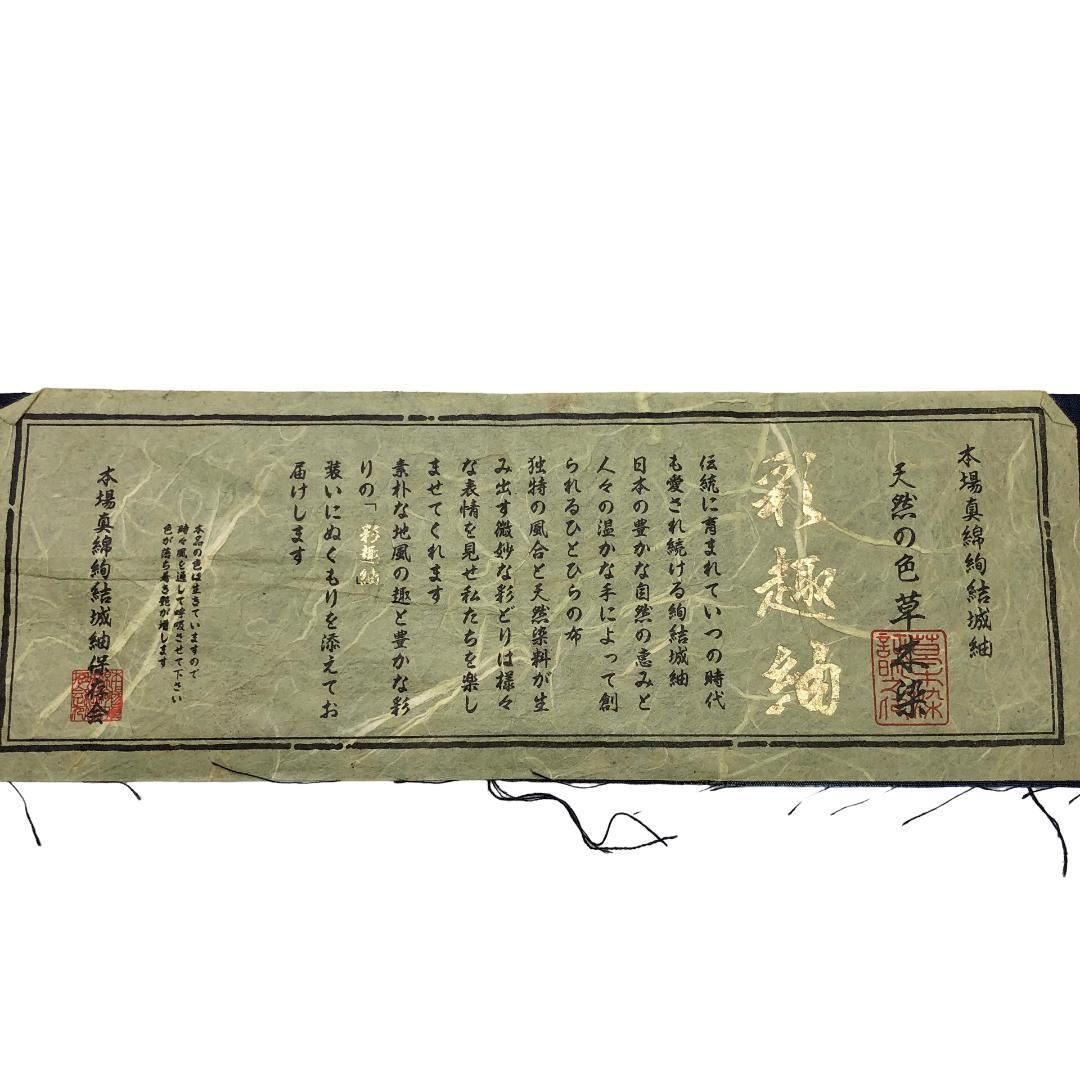 本場真綿絢結城紬
天然の色草木染
彩趣紬
伝統に育まれていつの時代
も愛され続ける絢結城紬
日本の豊かな自然の恵みと
人々の温かな手によって創
られるひとひらの布
独特の風合と天然染料が生
み出す微妙な彩どりは様々
な表情を見せ私たちを楽し
ませてくれます
素朴な地風の趣と豊かな彩
りの「彩趣紬
装いにぬくもりを添えてお
届けします
本品の色は生きていますので
時々風を通して呼吸させて下さい
色が落ち着き艶が増します
本場真綿絢結城紬保存会